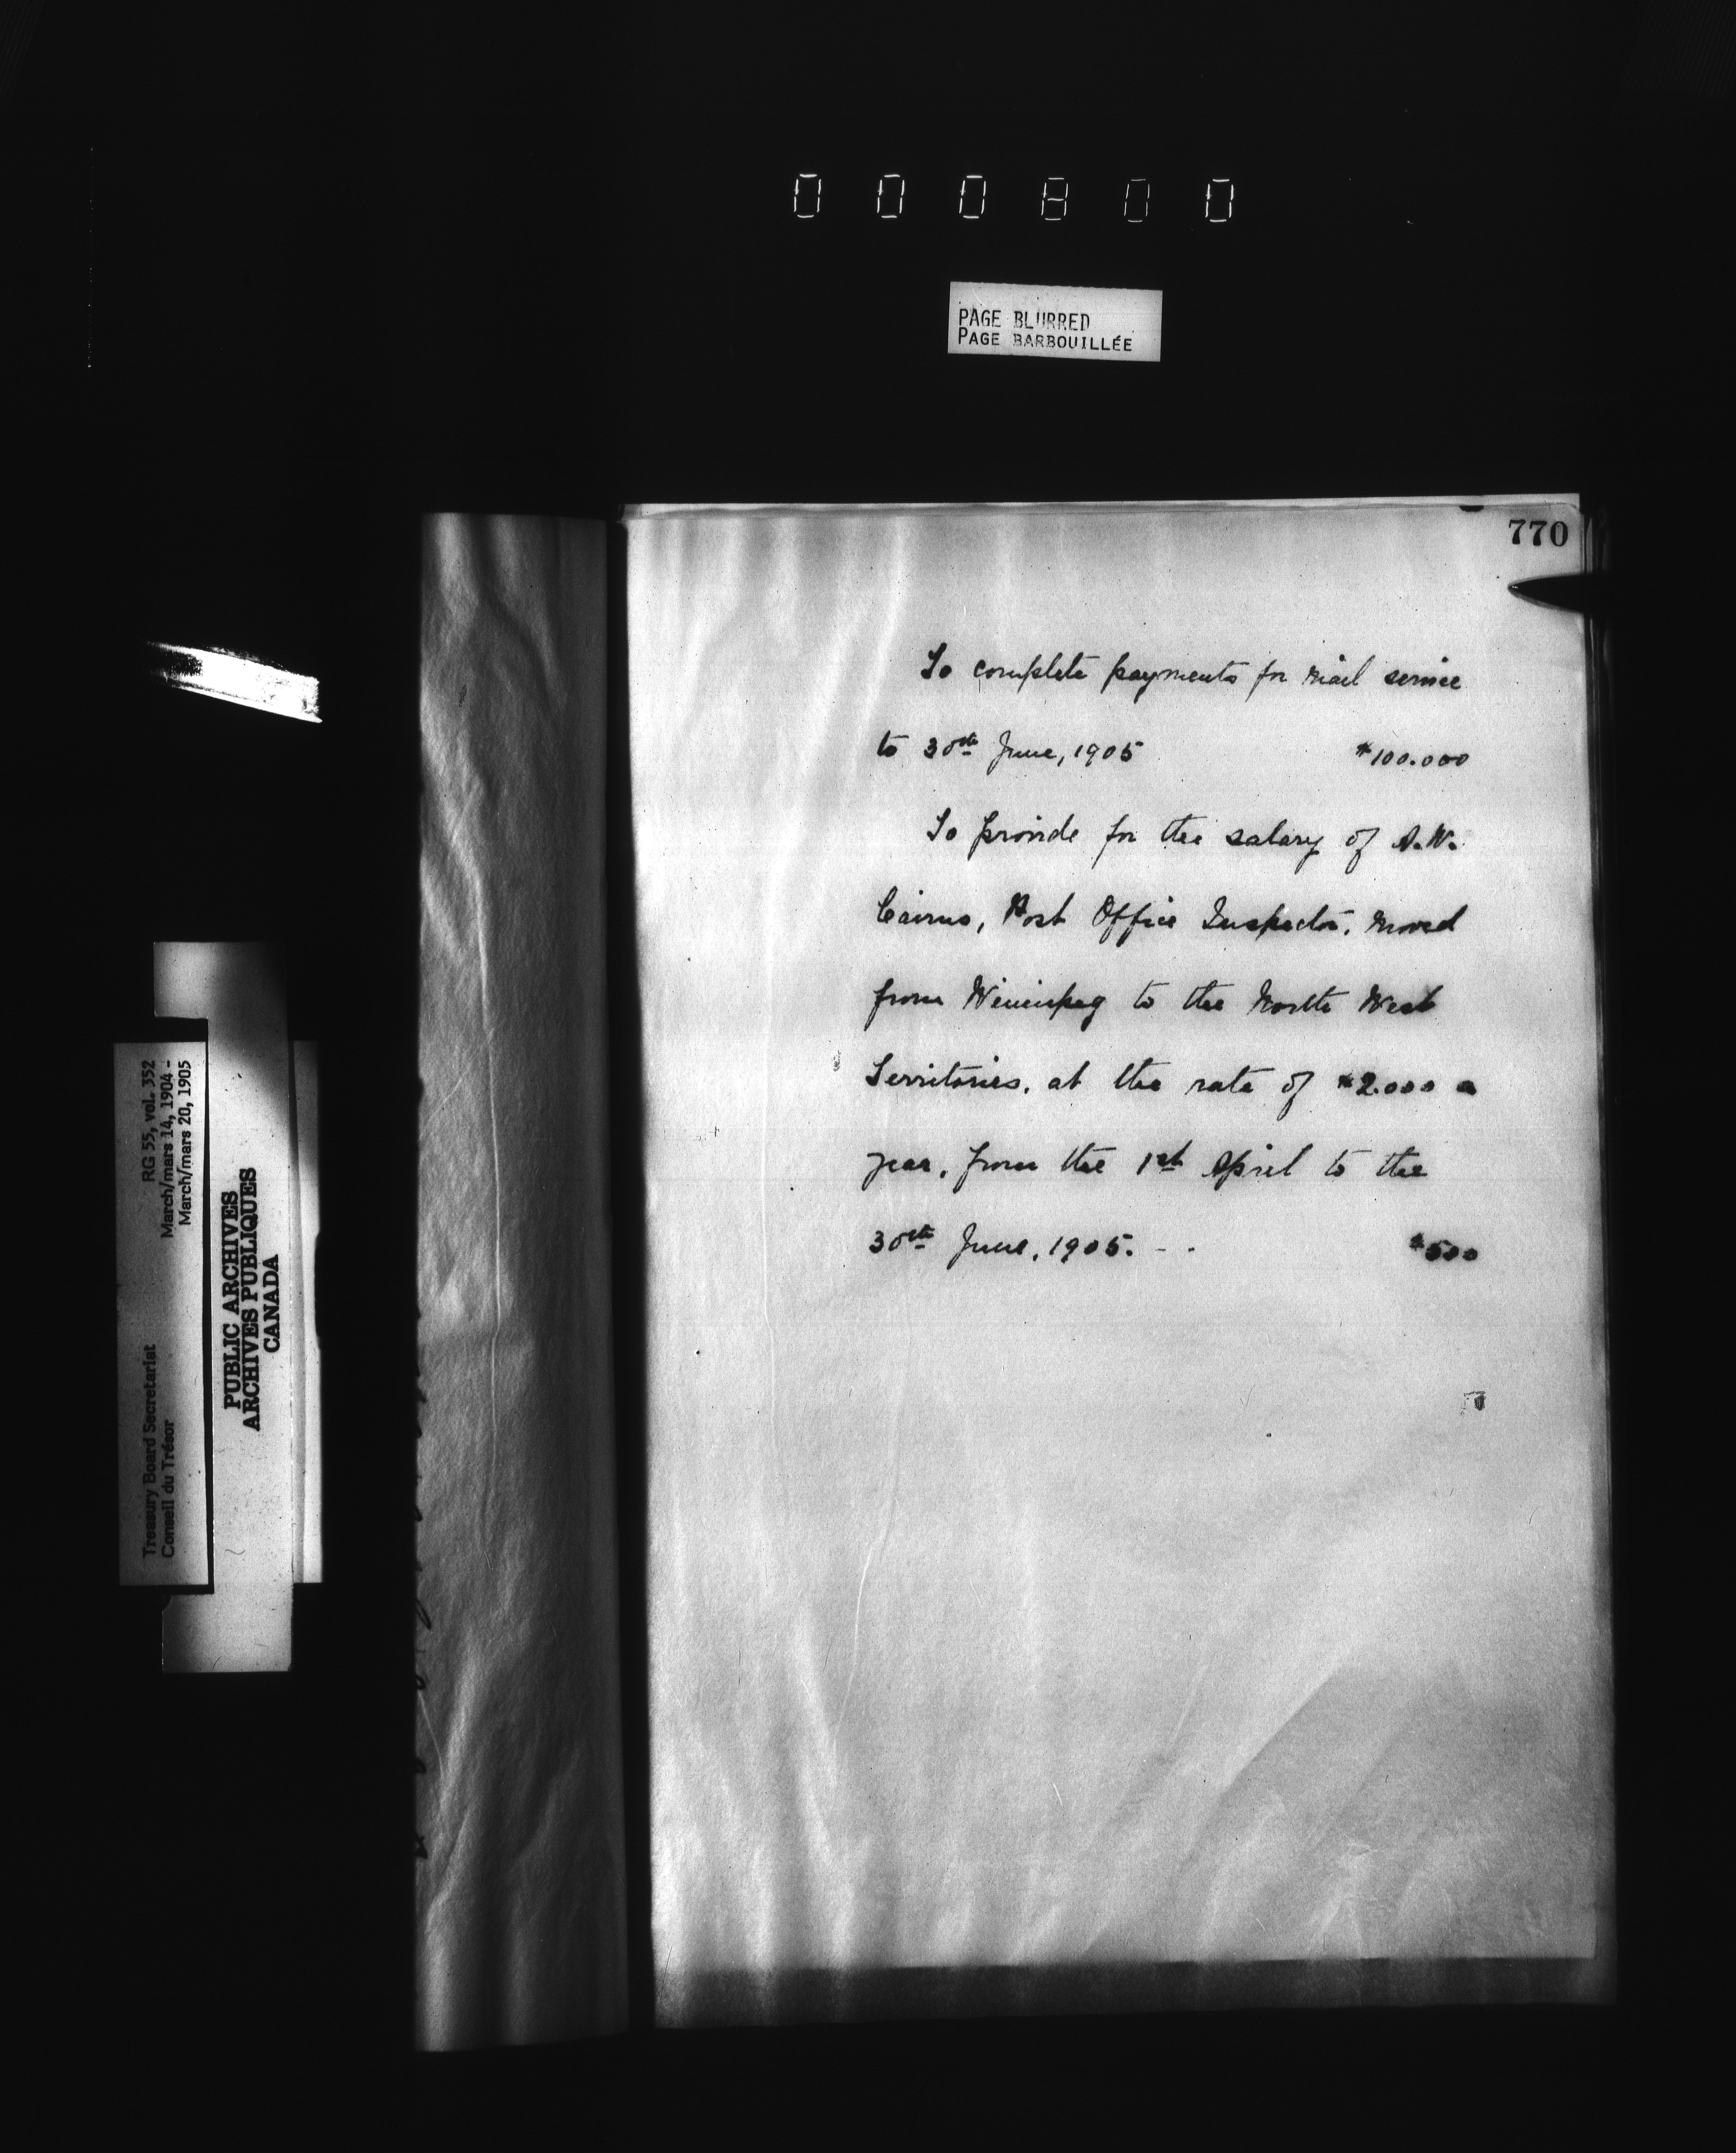 000800
PAGE BLURRED
PAGE BARBOUILLÉE
770
To complete payments for mail service
to 30th June, 1905 $100.000
To provide for the salary of A.W.
Cairns, Post Office Inspector, moved
from Winnipeg to the North West
Territories, at the rate of $2.000 a
year, from the 1st April to the
30th June, 1905. - - $500
Treasury Board Secretariat RG 55, vol. 352
Conseil du Trésor March/mars 14, 1904 -
March/mars 20, 1905
PUBLIC ARCHIVES
ARCHIVES PUBLIQUES
CANADA